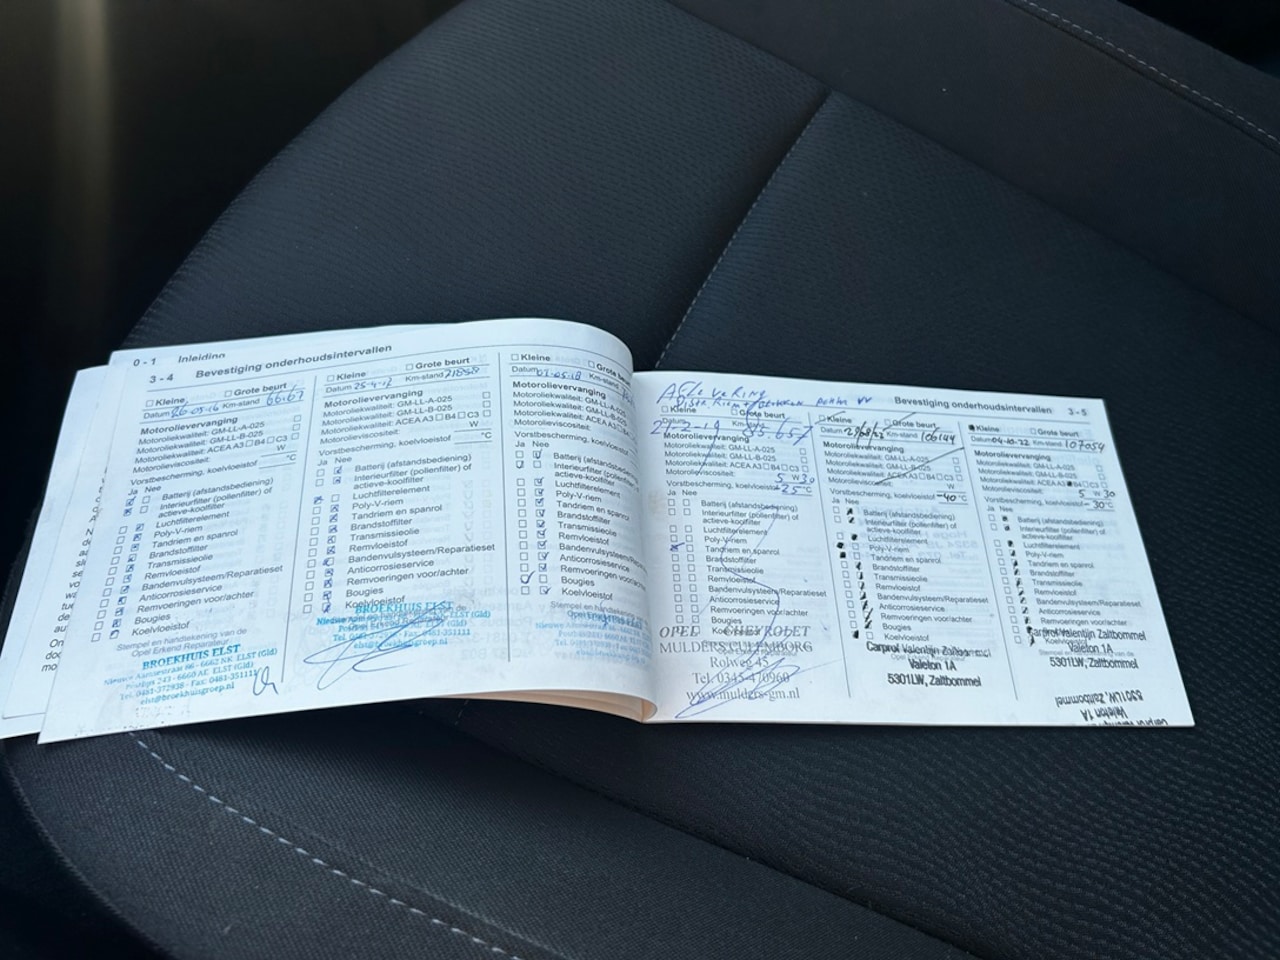 0 - 1 Inleiding
3 - 4 Bevestiging onderhoudsintervallen
Kleine Grote beurt
Datum 26-05-16 Km-stand
Motorolievervanging
Motoroliekwaliteit: GM-LL-A-025
Motoroliekwaliteit: GM-LL-B-025
Motoroliekwaliteit: ACEA A3 B4 C3
Motorolieviscositeit: W
Vorstbescherming, koelvloeistof °C
Ja Nee
Batterij (afstandsbediening)
Interieurfilter (pollenfilter) of
actieve-koolfilter
Luchtfilterelement
Poly-V-riem
Tandriem en spanrol
Brandstoffilter
Transmissieolie
Remvloeistof
Bandenvulsysteem/Reparatieset
Anticorrosieservice
Remvoeringen voor/achter
Bougies
Koelvloeistof
Stempel en handtekening van de
Opel Erkend Reparateur
BROEKHUIS ELST
Nieuwe Aamsestraat 86 - 6662 NK ELST (Gld)
Postbus 243 - 6660 AE ELST (Gld)
Tel. 0481-372938 - Fax: 0481-351111
elst@broekhuisgroep.nl
Kleine Grote beurt
Datum 25-4-17 Km-stand 71888
Motorolievervanging
Motoroliekwaliteit: GM-LL-A-025
Motoroliekwaliteit: GM-LL-B-025
Motoroliekwaliteit: ACEA A3 B4 C3
Motorolieviscositeit: W
Vorstbescherming, koelvloeistof °C
Ja Nee
Batterij (afstandsbediening)
Interieurfilter (pollenfilter) of
actieve-koolfilter
Luchtfilterelement
Poly-V-riem
Tandriem en spanrol
Brandstoffilter
Transmissieolie
Remvloeistof
Bandenvulsysteem/Reparatieset
Anticorrosieservice
Remvoeringen voor/achter
Bougies
Koelvloeistof
BROEKHUIS ELST
elst@broekhuisgroep.nl
Kleine
Datum 01-05-18 Km-stand
Motorolievervanging
Motoroliekwaliteit: GM-LL-A-025
Motoroliekwaliteit: GM-LL-B-025
Motoroliekwaliteit: ACEA A3
Motorolieviscositeit:
Vorstbescherming, koelvloeistof
Ja Nee
Batterij (afstandsbediening)
Interieurfilter (pollenfilter) of
actieve-koolfilter
Luchtfilterelement
Poly-V-riem
Tandriem en spanrol
Brandstoffilter
Transmissieolie
Remvloeistof
Bandenvulsysteem
Anticorrosieservice
Remvoeringen voor
Bougies
Koelvloeistof
BROEKHUIS ELST
Bevestiging onderhoudsintervallen 3 - 5
AFLEVERING
Kleine Grote beurt
Datum Km-stand 83.657
Motorolievervanging
Motoroliekwaliteit: GM-LL-A-025
Motoroliekwaliteit: GM-LL-B-025
Motoroliekwaliteit: ACEA A3 B4 C3
Motorolieviscositeit: 5 W 30
Vorstbescherming, koelvloeistof -25 °C
Ja Nee
Batterij (afstandsbediening)
Interieurfilter (pollenfilter) of
actieve-koolfilter
Luchtfilterelement
Poly-V-riem
Tandriem en spanrol
Brandstoffilter
Transmissieolie
Remvloeistof
Bandenvulsysteem/Reparatieset
Anticorrosieservice
Remvoeringen voor/achter
Bougies
Koelvloeistof
OPEL CHEVROLET
MULDERS CULEMBORG
Rolweg 45
Tel. 0345-470960
www.mulders-gm.nl
Kleine Grote beurt
Datum Km-stand 106144
Motorolievervanging
Motoroliekwaliteit: GM-LL-A-025
Motoroliekwaliteit: GM-LL-B-025
Motoroliekwaliteit: ACEA A3 B4 C3
Motorolieviscositeit: W
Vorstbescherming, koelvloeistof -40 °C
Ja Nee
Batterij (afstandsbediening)
Interieurfilter (pollenfilter) of
actieve-koolfilter
Luchtfilterelement
Poly-V-riem
Tandriem en spanrol
Brandstoffilter
Transmissieolie
Remvloeistof
Bandenvulsysteem/Reparatieset
Anticorrosieservice
Remvoeringen voor/achter
Bougies
Koelvloeistof
Carprof Valentijn Zaltbommel
Valeton 1A
5301LW, Zaltbommel
Kleine Grote beurt
Datum 04-10-22 Km-stand 107054
Motorolievervanging
Motoroliekwaliteit: GM-LL-A-025
Motoroliekwaliteit: GM-LL-B-025
Motoroliekwaliteit: ACEA A3 B4 C3
Motorolieviscositeit: 5 W 30
Vorstbescherming, koelvloeistof -30 °C
Ja Nee
Batterij (afstandsbediening)
Interieurfilter (pollenfilter) of
actieve-koolfilter
Luchtfilterelement
Poly-V-riem
Tandriem en spanrol
Brandstoffilter
Transmissieolie
Remvloeistof
Bandenvulsysteem/Reparatieset
Anticorrosieservice
Remvoeringen voor/achter
Bougies
Koelvloeistof
Carprof Valentijn Zaltbommel
Valeton 1A
5301LW, Zaltbommel
5301LW, Zaltbommel
Valeton 1A